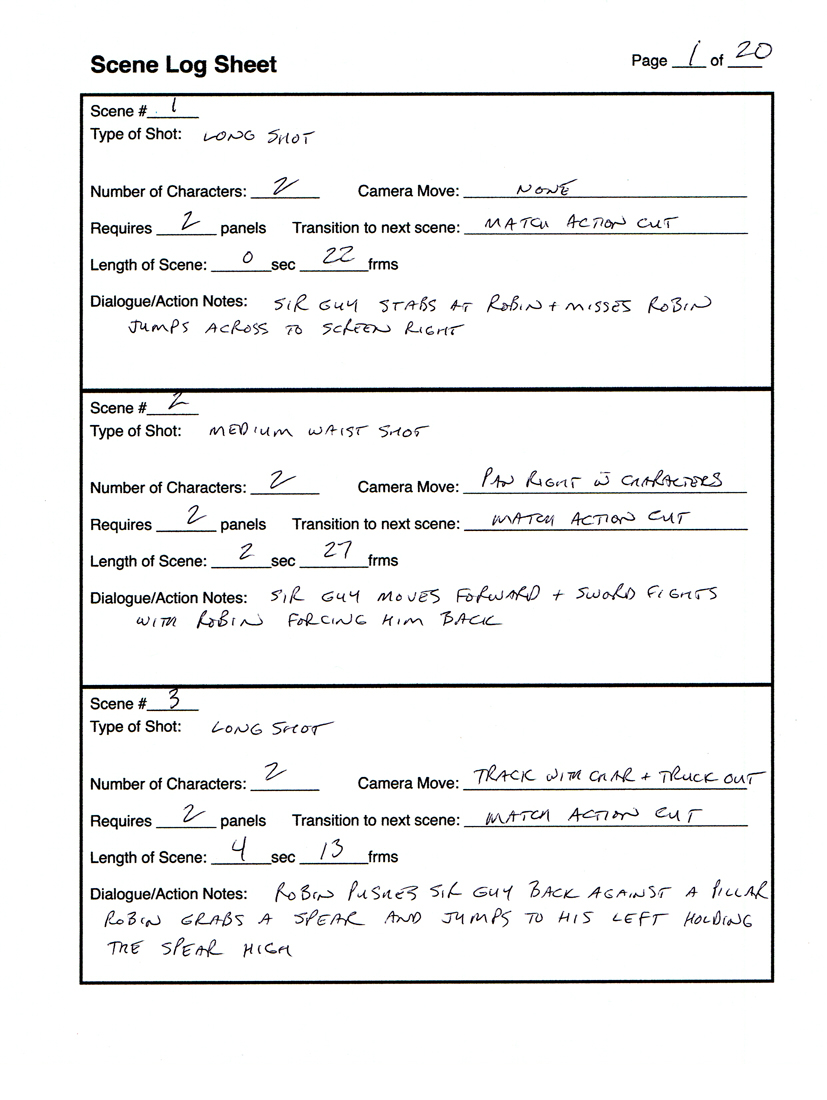 Scene Log Sheet Page 1 of 20
Scene # 1
Type of Shot: LONG SHOT
Number of Characters: 2 Camera Move: NONE
Requires 2 panels Transition to next scene: MATCH ACTION CUT
Length of Scene: 0 sec 22 frms
Dialogue/Action Notes: SIR GUY STABS AT ROBIN + MISSES ROBIN
JUMPS ACROSS TO SCREEN RIGHT
Scene # 2
Type of Shot: MEDIUM WAIST SHOT
Number of Characters: 2 Camera Move: PAN RIGHT w̄ CHARACTERS
Requires 2 panels Transition to next scene: MATCH ACTION CUT
Length of Scene: 2 sec 27 frms
Dialogue/Action Notes: SIR GUY MOVES FORWARD + SWORD FIGHTS
WITH ROBIN FORCING HIM BACK
Scene # 3
Type of Shot: LONG SHOT
Number of Characters: 2 Camera Move: TRACK WITH CHAR + TRUCK OUT
Requires 2 panels Transition to next scene: MATCH ACTION CUT
Length of Scene: 4 sec 13 frms
Dialogue/Action Notes: ROBIN PUSHES SIR GUY BACK AGAINST A PILLAR
ROBIN GRABS A SPEAR AND JUMPS TO HIS LEFT HOLDING
THE SPEAR HIGH